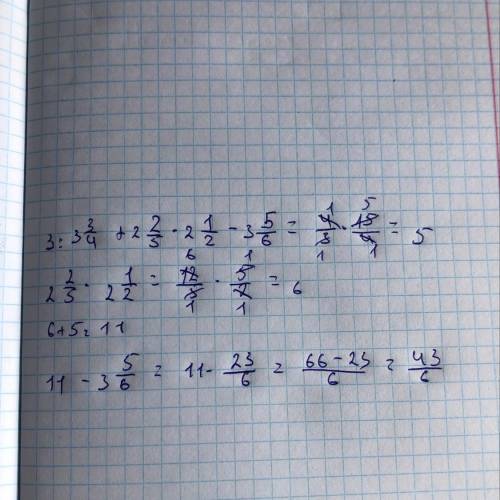 3 : 3 3/4 + 2 2/3 · 2 1/2 - 3 5/6 = 4/3 · 15/4 = 5
2 2/3 · 2 1/2 = 12/3 · 5/2 = 6
6+5=11
11 - 3 5/6 = 11 - 23/6 = 66-23/6 = 43/6